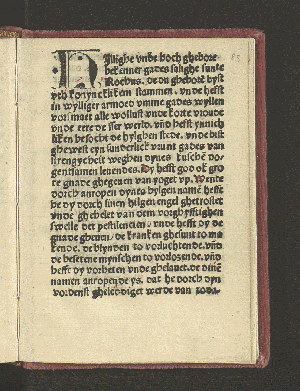 Hillighe vnde hoch ghebore
bekenner gades salighe sunte
Rochus. de du ghebort byst
vth konyncklikem stammen, vnde hefst
in wylliger armoet vmme gades wyllen
vorsmaet alle wollust vnde korte vroude
vnde eere desser werld. vnd hefst ynnich
liken besocht de hylghen stede. vnde bist
ghewest eyn sunderlick vrunt gades van
strengycheit weghen dynes kuschē do-
gentsamen leuendes. Dy hefft god ok gro
te gnade ghegeuen van
dorch anropen dynes hylgen name hefft
he dy dorch sinen hilgen engel ghetrostet
vnde ghehelet van dem vorghyfftighen
swelle der pestilencien. vnde hefft dy de
gnade gheuen, de kranken ghesunt to ma
kende. de blynden to vorluchtende. vnd
de besetene mynschen to vorlosende. vnd
hefft dy vorheten vnde ghelauet. de dinē
namen anropende ys. dat he dorch dyn
vordenst ghelediget werde van